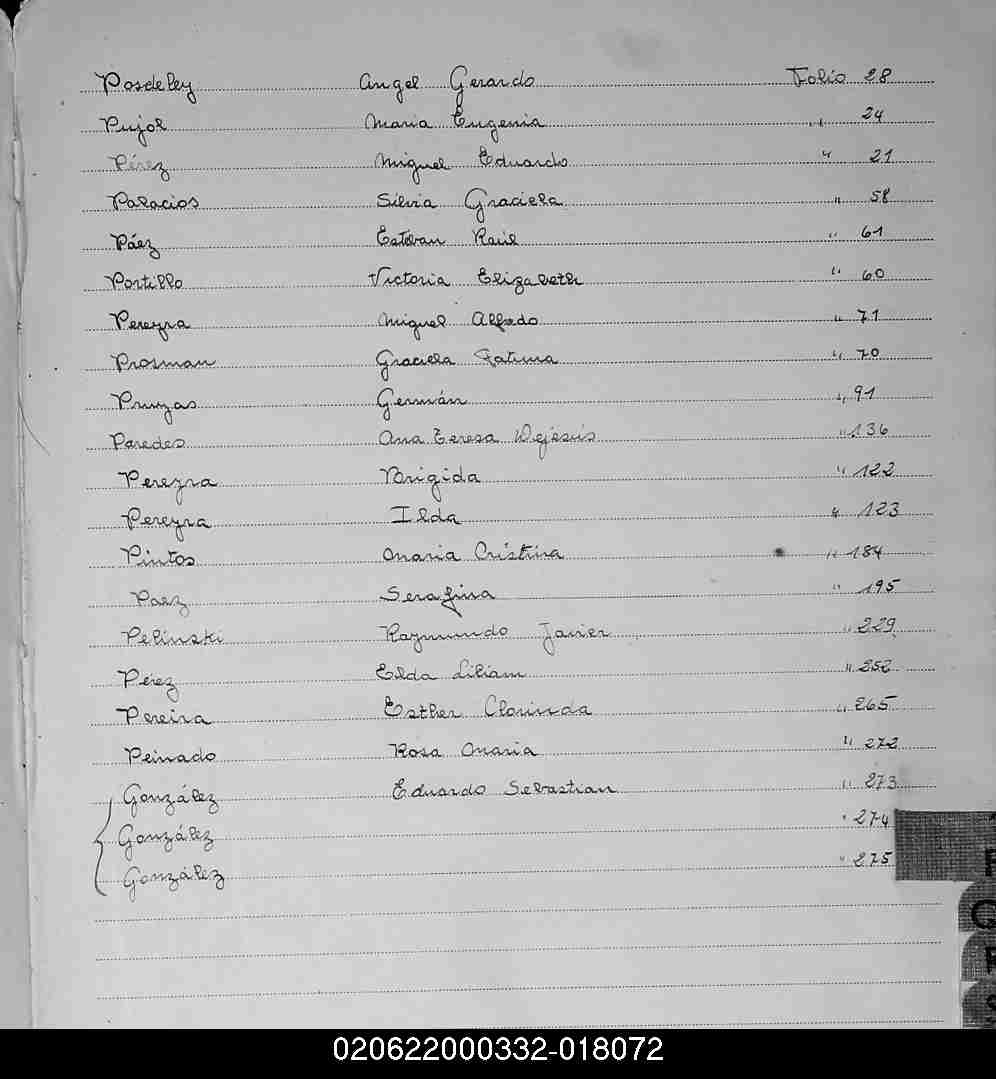 Posdeley Angel Gerardo Folio 28
Pujol Maria Eugenia " 24
Pérez Miguel Eduardo " 21
Palacios Silvia Graciela " 58
Páez Esteban Raúl " 61
Portillo Victoria Elizabeth " 60
Pereyra Miguel Alfredo " 71
Prosman Graciela Fatima " 70
Germán " 91
Paredes Ana Teresa Dejesús " 136
Pereyra Brigida " 122
Pereyra Ilda " 123
Pintos Maria Cristina " 184
Paez Serafina " 195
Pelinski Raymundo Javier " 229
Pérez Elda Liliam " 252
Pereira Esther Clorinda " 265
Peinado Rosa Maria " 272
González Eduardo Sebastian " 273
González " 274
González " 275
P
Q
R
S
020622000332-018072